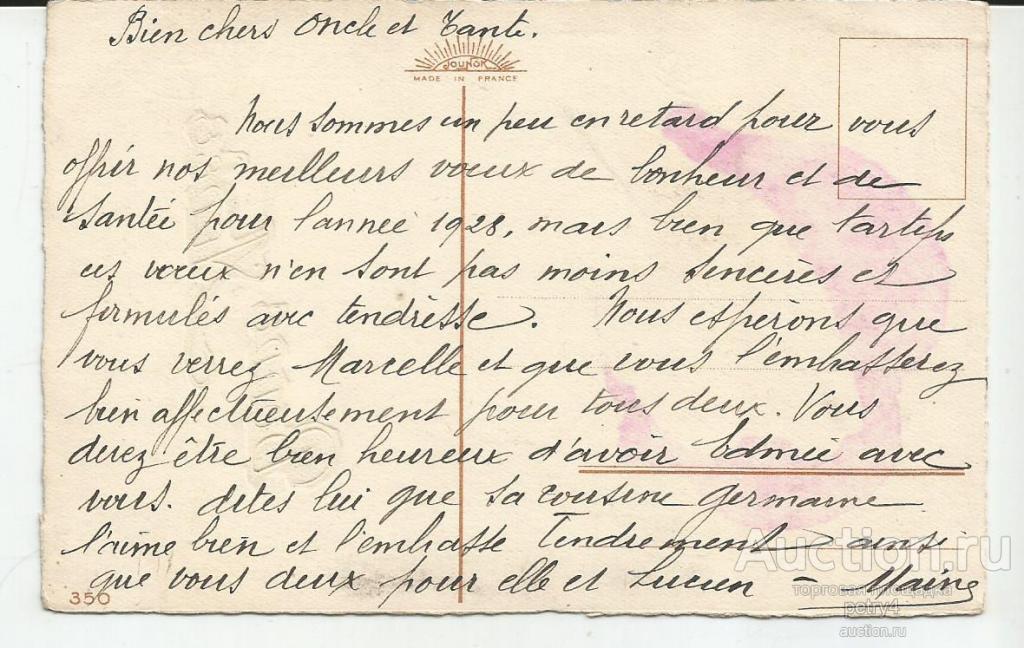 Bien chers Oncle et Tante.
JOUNOK
MADE IN FRANCE
Nous sommes un peu en retard pour vous
offrir nos meilleurs vœux de bonheur et de
santée pour l'année 1928, mais bien que tartifs
ces vœux n'en sont pas moins sencères et
formulés avec tendresse. Nous espérons que
vous verrez Marcelle et que vous l'embasserez
bien affectueusement pour tous deux. Vous
devez être bien heureux d'avoir Edmée avec
vous. dites lui que sa cousine germaine
l'aime bien et l'embasse Tendrement ainsi
que vous deux pour elle et Lucien =
350
Auction.ru
торговая площадка
petry4
auction.ru